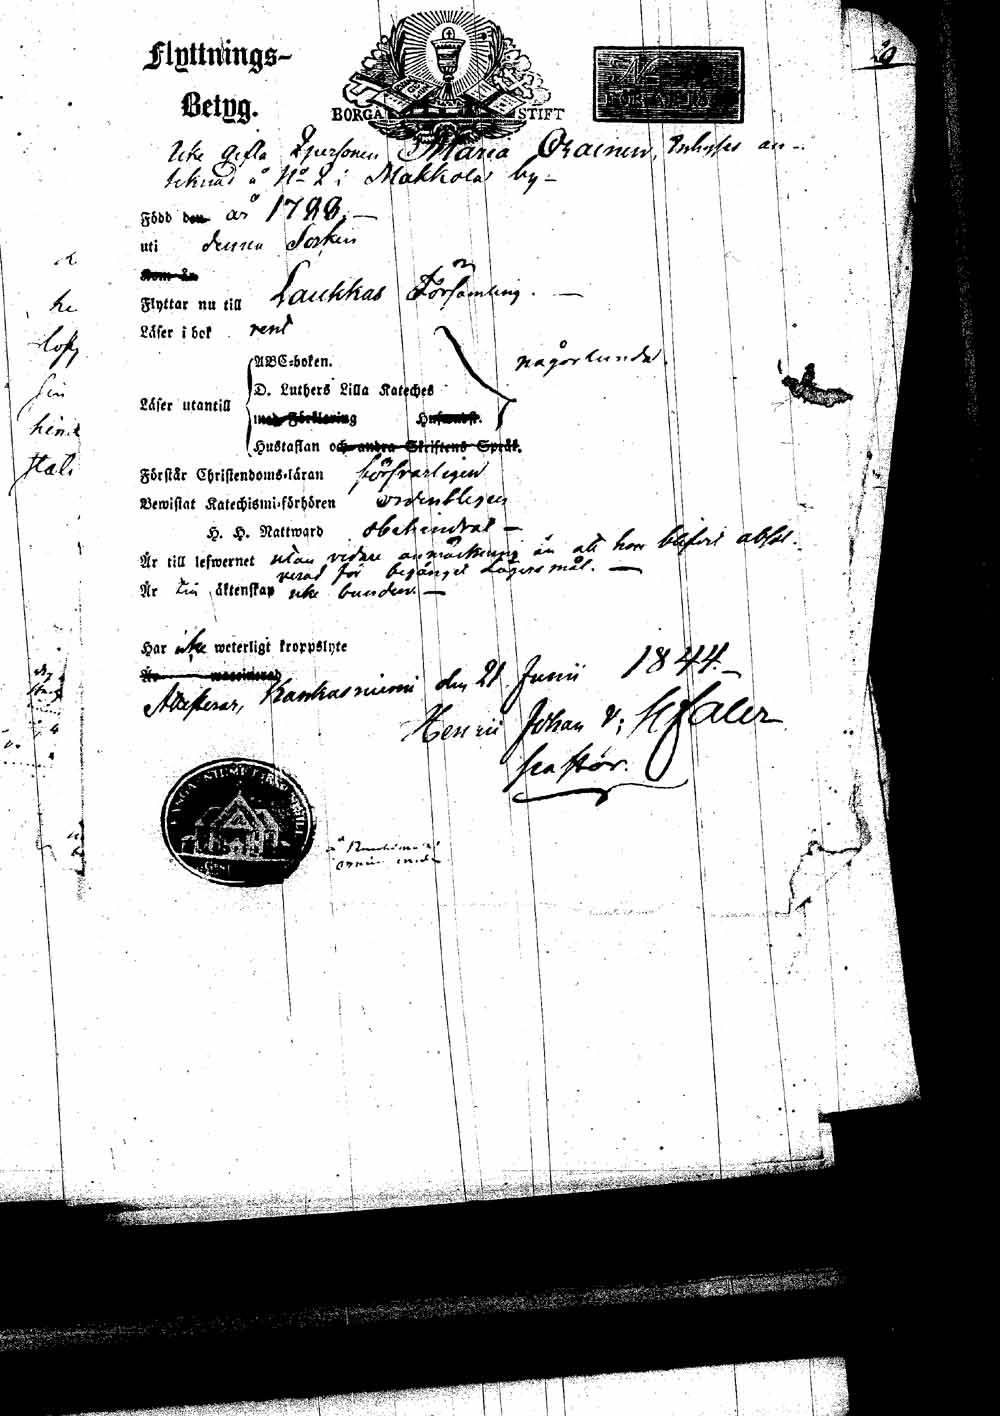 29
Flyttnings-
Betyg.
BORGÅ STIFT
Icke gifta Qpersonen Maria Inhyses an-
teknad å No 2 i Makkola by-
Född den år 1788.
uti denna Sockn
Kom år
Flyttar nu till Laukkas Församling.
Läser i bok rent
Läser utantill
ABC-boken.
D. Luthers Lilla Kateches
med Förklaring
Hustaflan och andra Skriftens Språk.
någorlunda.
Förstår Christendoms-läran försvarligen
Bewistat Katechismi-förhören ordentligen
H. H. Nattward obehindrat
Är till lefwernet utan vidare anmärkning än att hon blifvit absol-
verad för begånget Lägersmål.
Är till äktenskap icke bunden.
Har icke weterligt kroppslyte
Är waccinerad
Attesterar, Kankasniemi den 21 Junii 1844.
Henric Johan
Pastor.